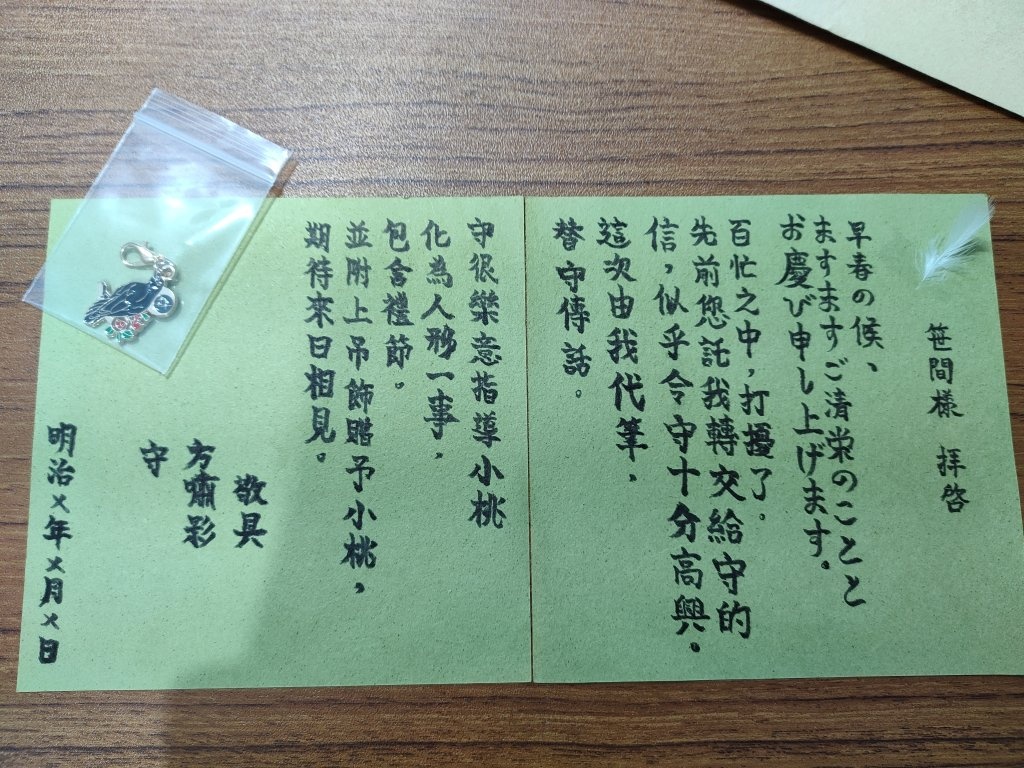 笹間樣 拝啓
早春の候、
ますますご清栄のことと
お慶び申し上げます。
百忙之中,打擾了。
先前您託我轉交給守的
信,似乎令守十分高興。
這次由我代筆,
替守傳話。
守很樂意指導小桃
化為人形一事,
包含禮節。
並附上吊飾贈予小桃,
期待來日相見。
敬具
方嘯彩
守
明治×年×月×日